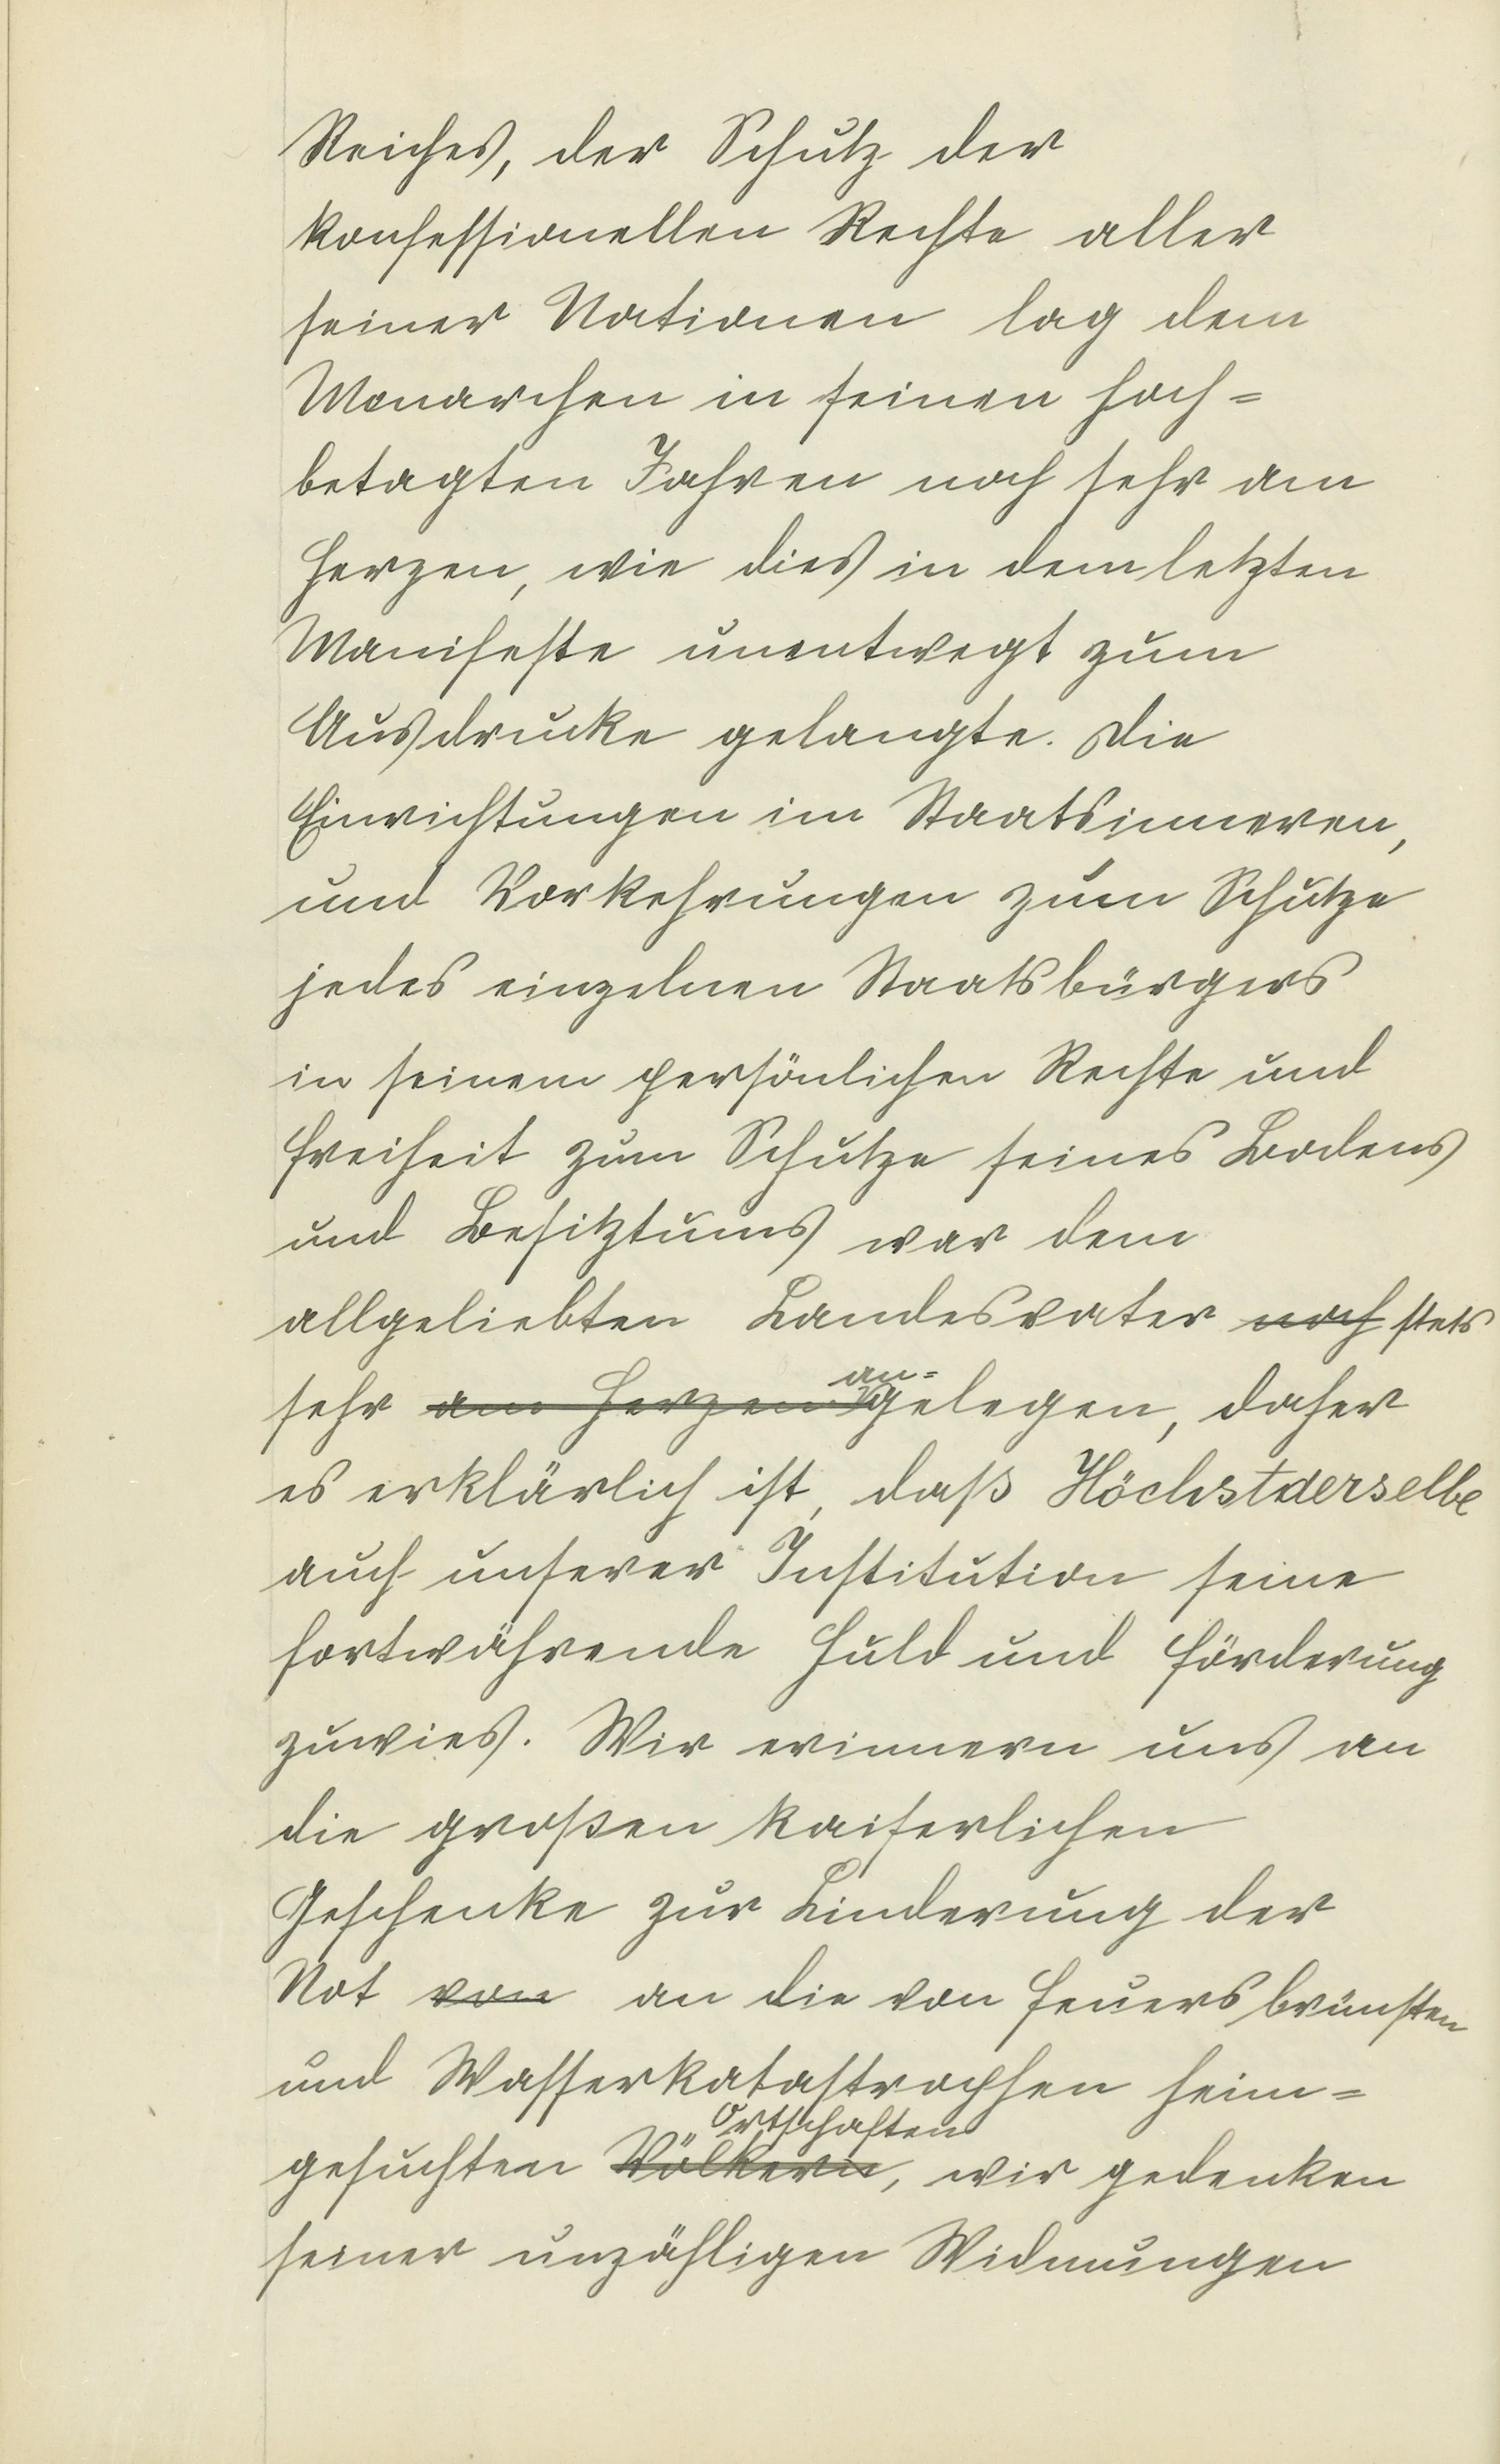 Reiches, der Schutz der
konfessionellen Rechte aller
seiner Nationen lag dem
Monarchen in seinen hoch=
betagten Jahren noch sehr am
Herzen, wie dies in dem letzten
Manifeste unentwegt zum
Ausdrucke gelangte. Die
Einrichtungen im Staatsinneren,
und Vorkehrungen zum Schutze
jedes einzelnen Staatsbürgers
in seinem persönlichen Rechte und
Freiheit zum Schutze seines Bodens
und Besitztums war dem
allgeliebten Landesvater noch stets
an=
sehr am Herzen gelegen, daher
es erklärlich ist, daß Höchstderselbe
auch unserer Institution seine
fortwährende Huld und Förderung
zuwies. Wir erinnern uns an
die großen kaiserlichen
Geschenke zur Linderung der
Not von an die von Feuersbrünsten
und Wasserkatastrophen heim=
Ortschaften
gesuchten Völkern, wir gedenken
seiner unzähligen Widmungen